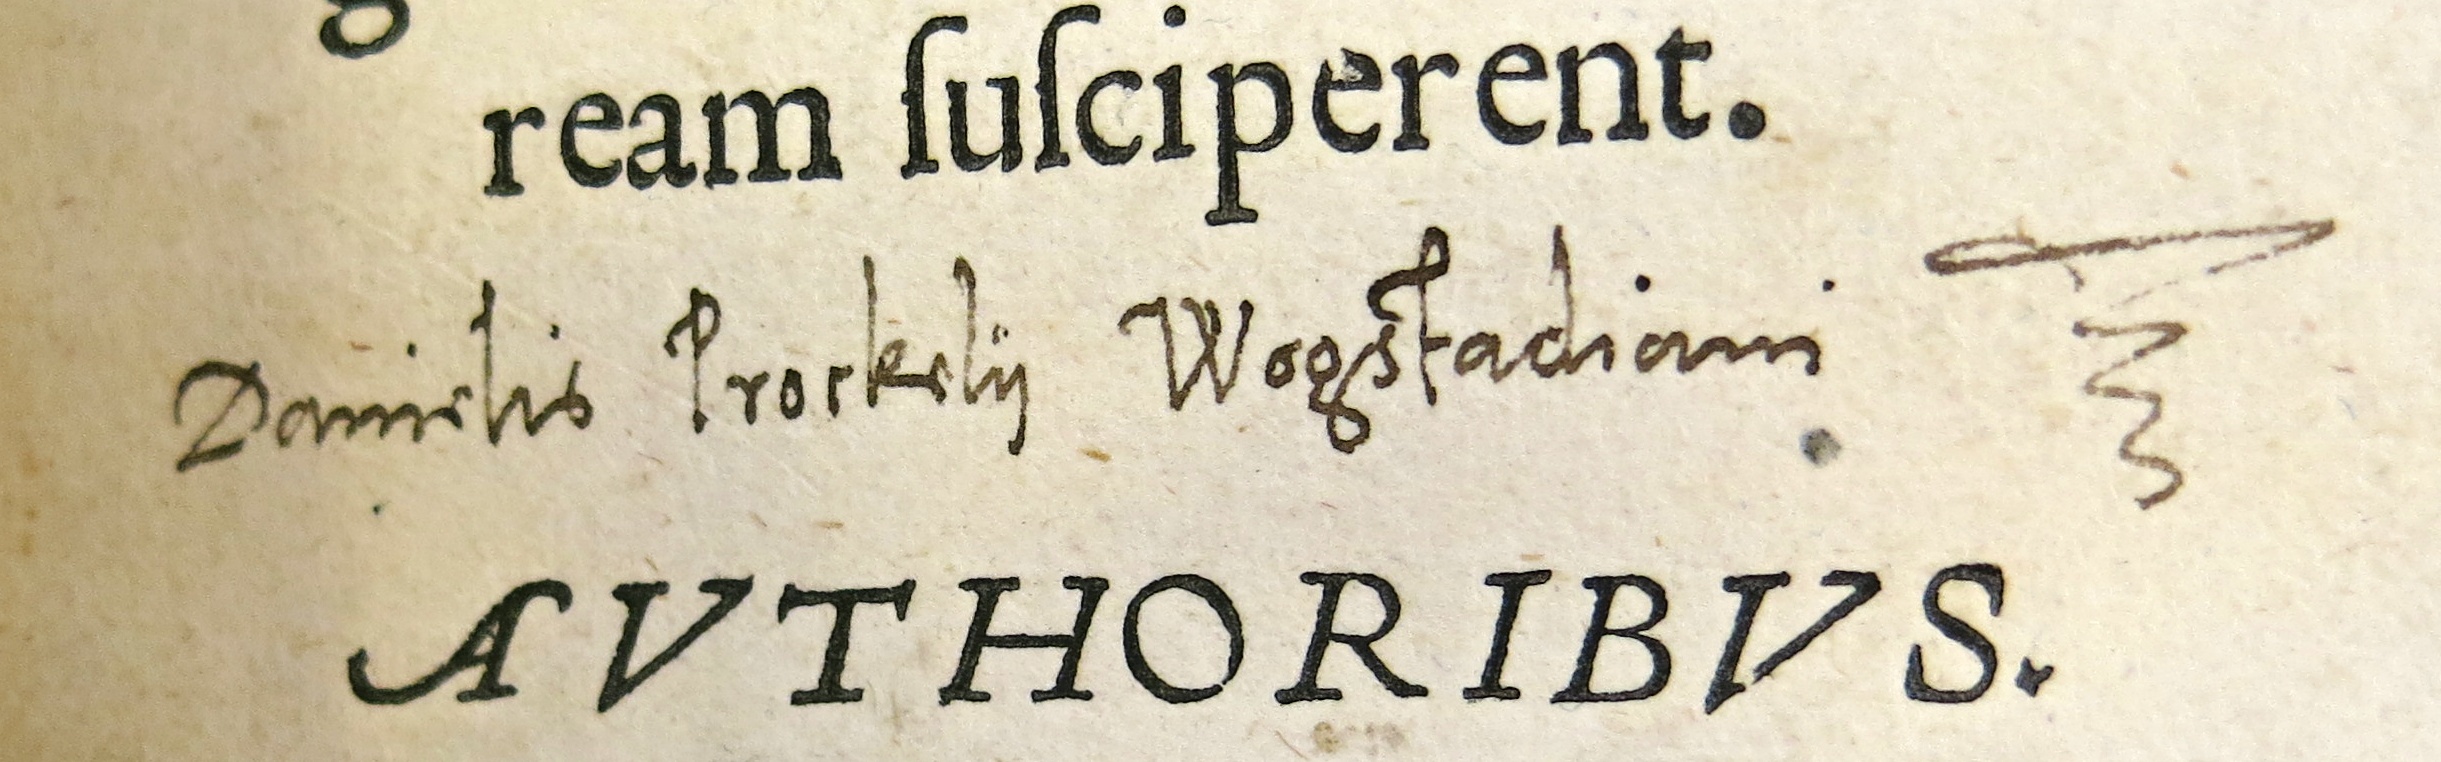 ream ſuſciperent.
Danielis Prockelij Wogstadiani
AVTHORIBVS.